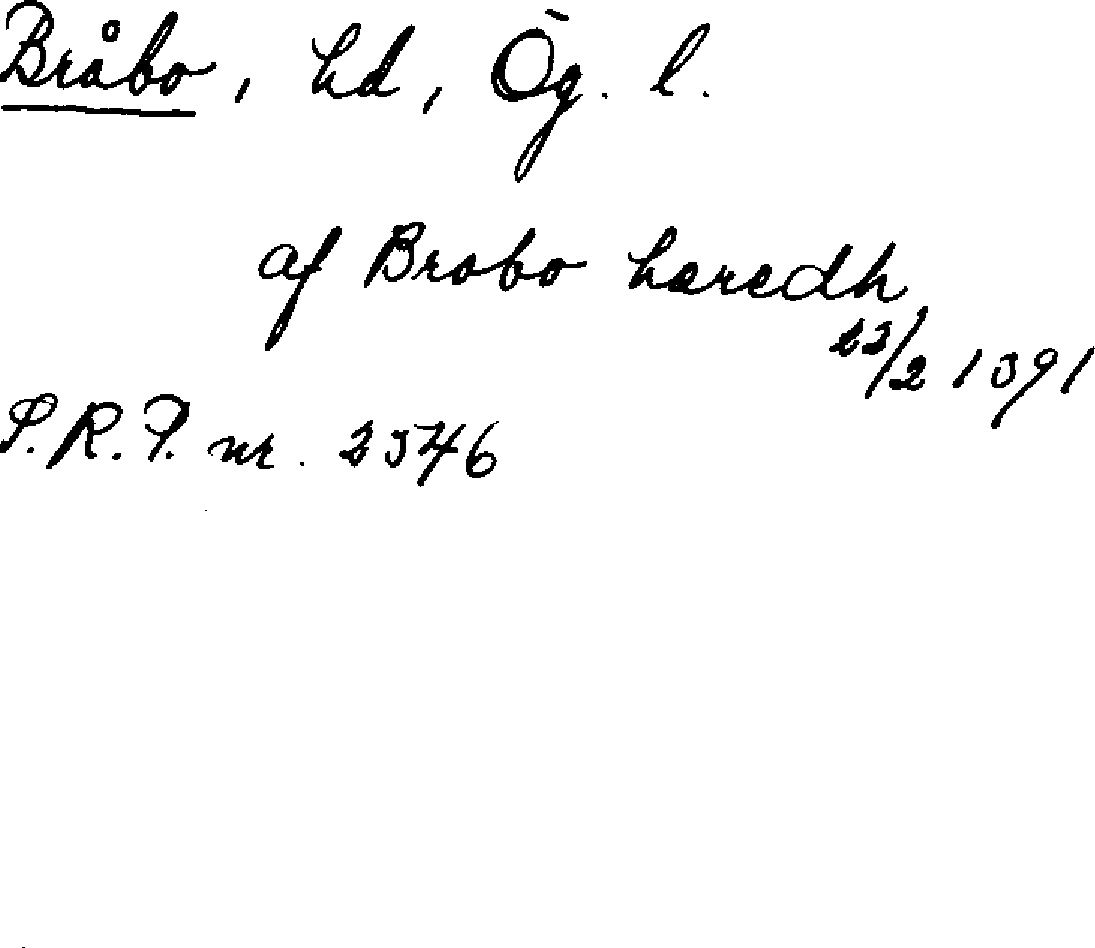 Bråbo, hd, Ög. l.
af Brobo hæredh
23/2 1391
S.R.P. nr. 2546